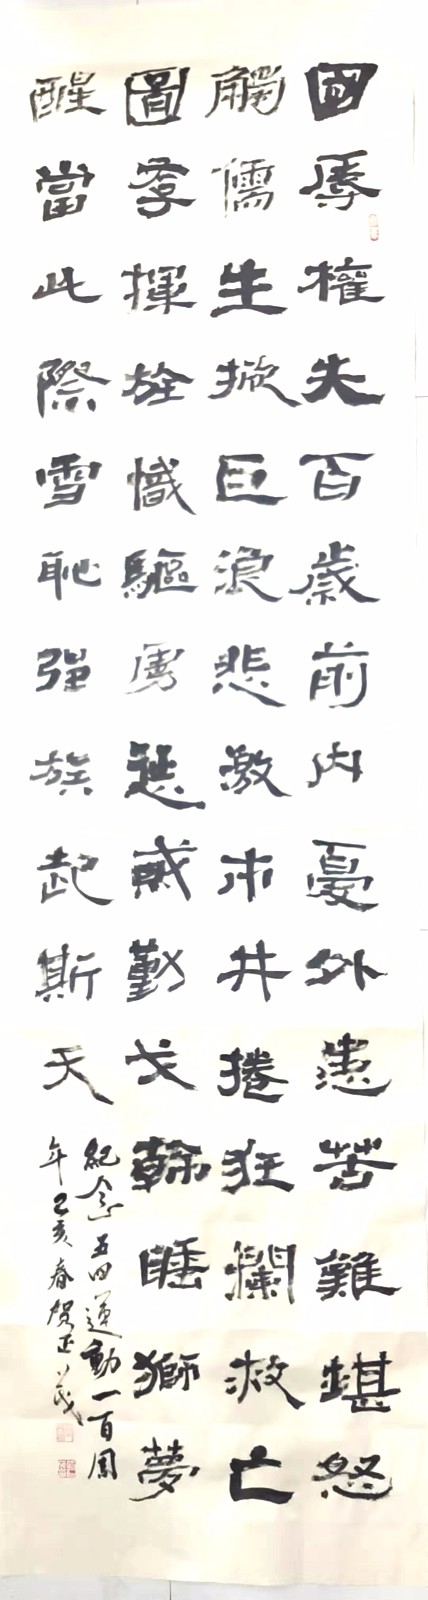 國辱權失百歲前内憂外患苦難堪怒
觸儒生掀巨浪悲激市井捲狂瀾救亡
圖存揮旌幟驅虜懲勤戈睡獅夢
醒當此際雪恥强族起斯天
紀念五四運動一百周
年己亥春贺正茂